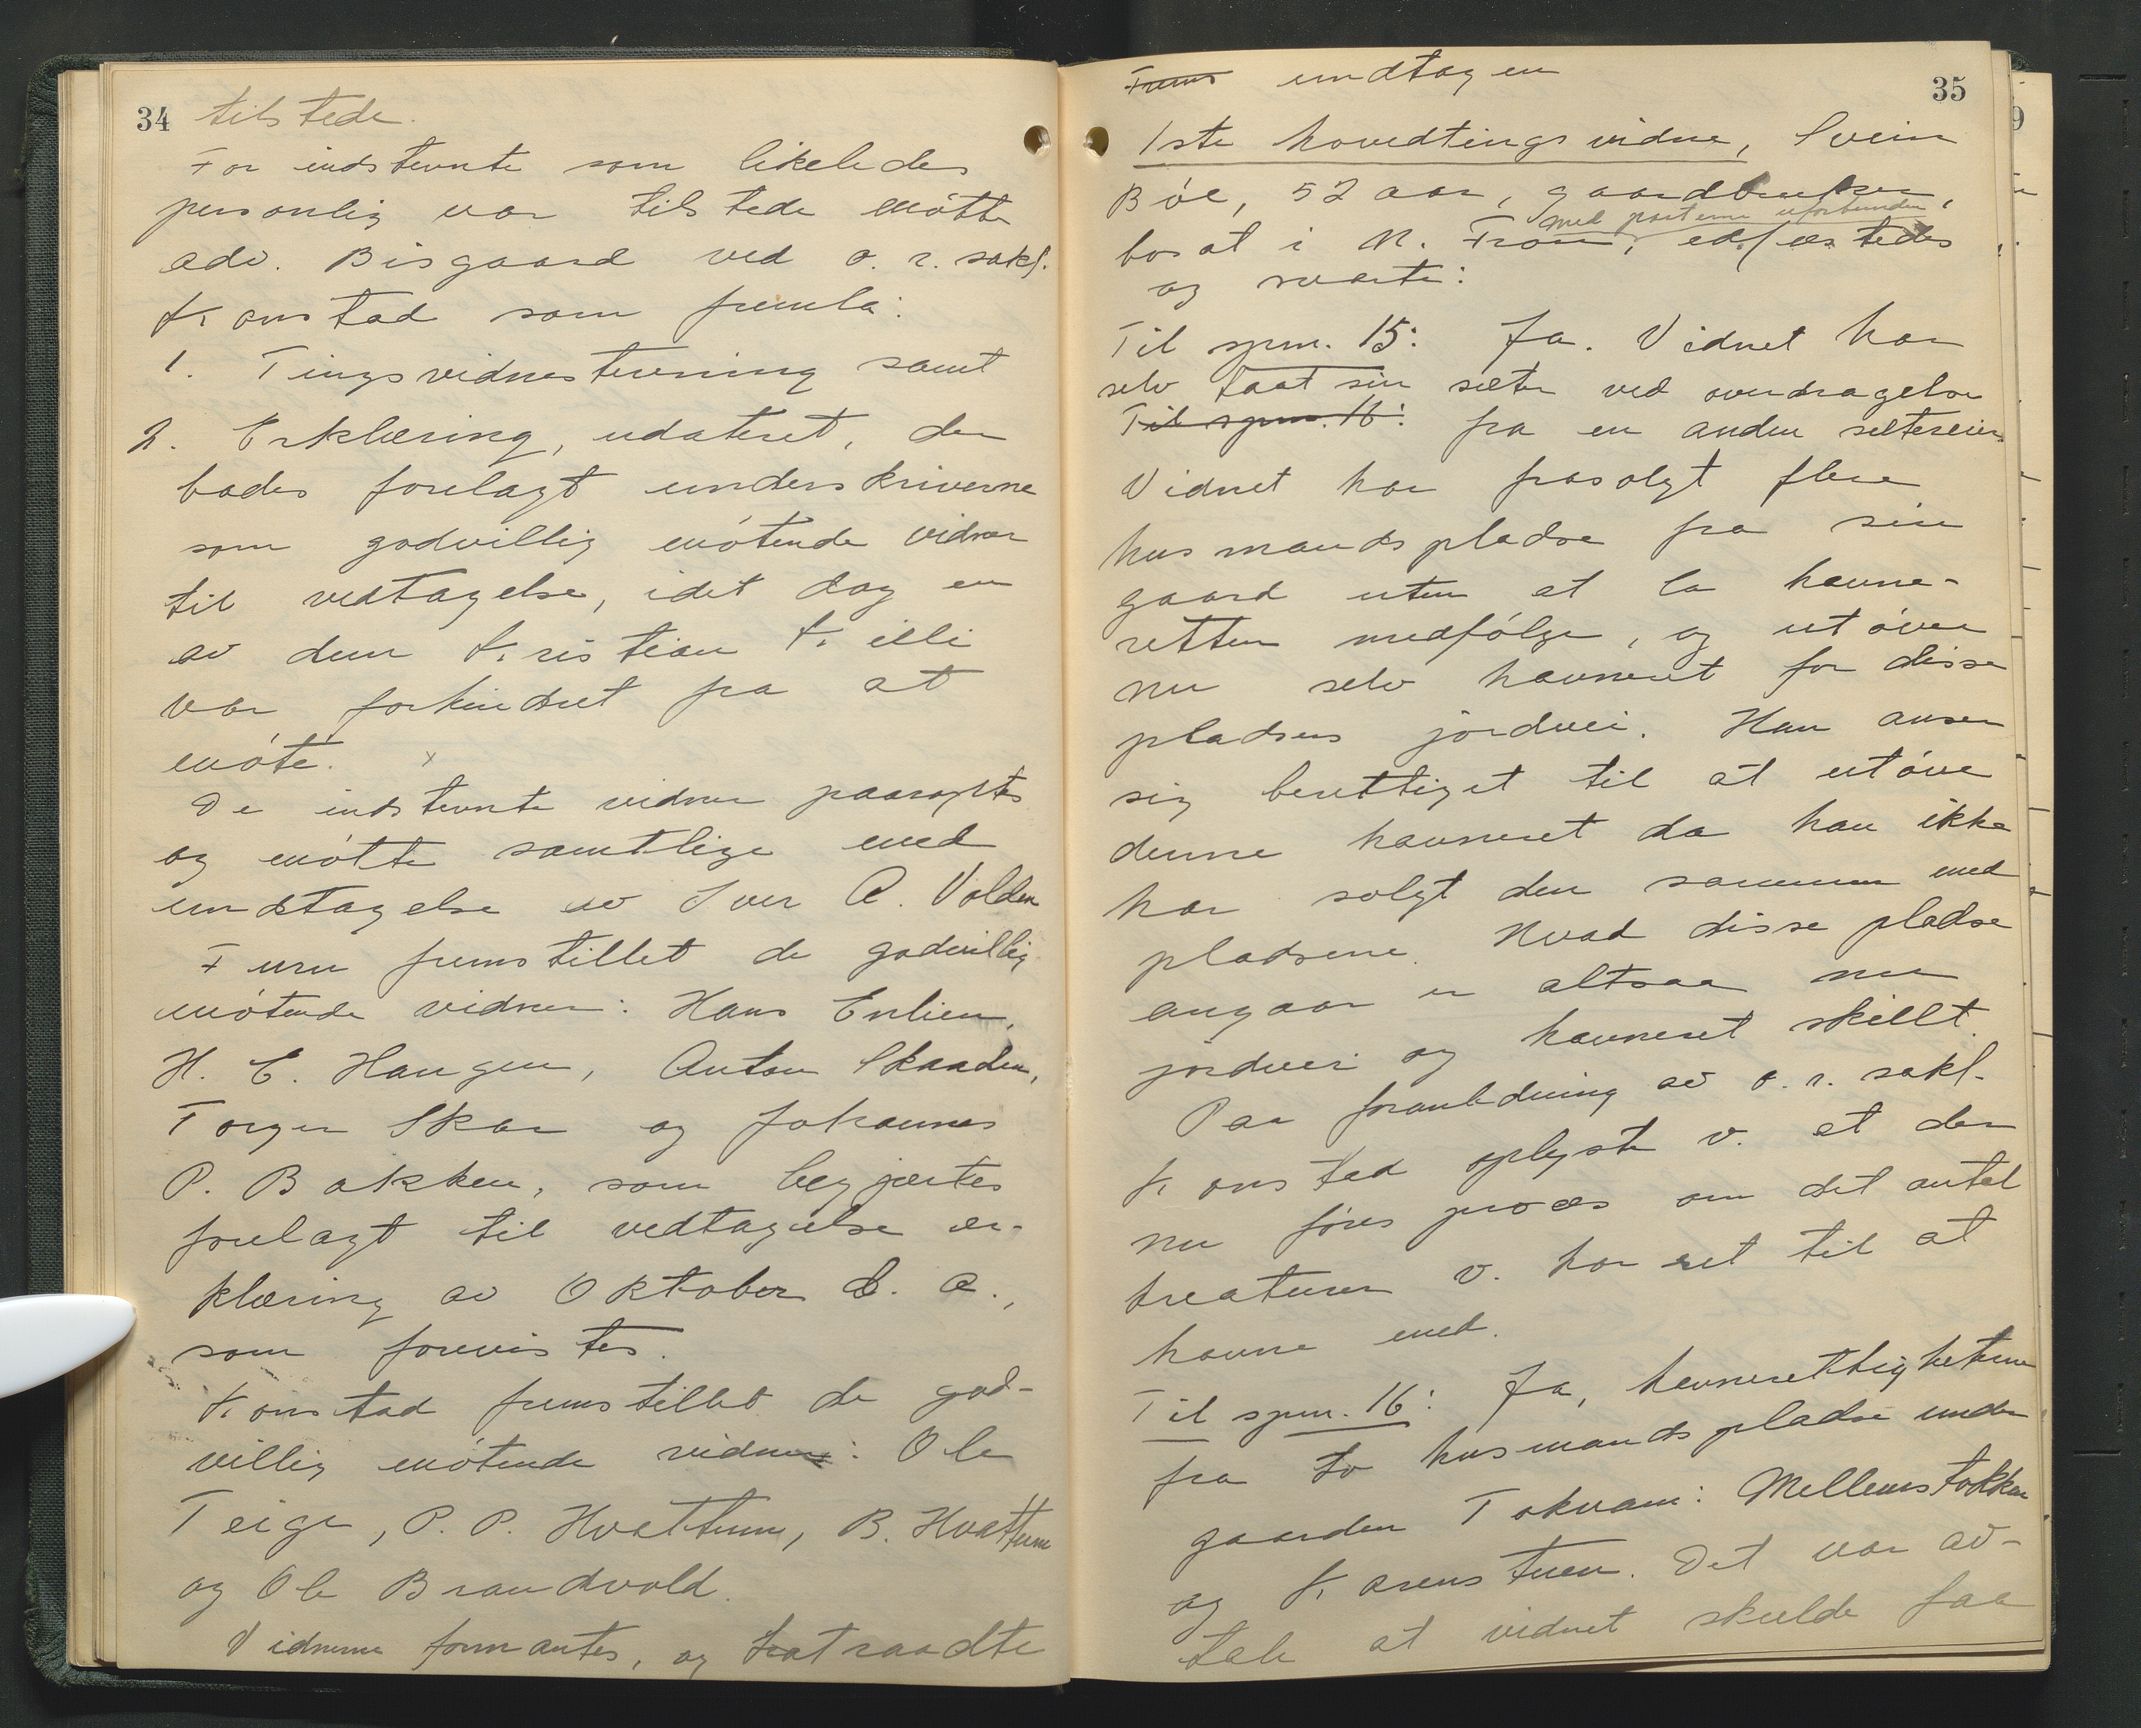 34
tilstede.
For indstevnte som likeledes
personlig var tilstede møtte
adv. Bisgaard ved o. r. sakf.
Konstad som fremla:
1. Tingsvidnestevning samt
2. Erklæring, udateret, der
bades forelagt underskriverne
som godvillig møtende vidner
til vedtagelse, idet dog en
av dem Kristian Killi
var forhindret fra at
møte. x
De indstevnte vidner paaroptes
og møtte samtlige med
undtagelse av Iver A. Volden
Furu fremstillet de godvillig
møtende vidner: Hans Enlien,
H. E. Haugen, Anton Skaaden,
Torger Skar og Johannes
P. Bakken, som begjærtes
forelagt til vedtagelse er-
klæring av Oktober d. a.,
som forevistes.
Konstad fremstillet de god-
villig møtende vidner: Ole
Teige, P. P. Hvattum, B. Hvattum
og Ole Brandvold.
Vidnerne formantes, og fratraadte
35
undtagen
1ste hovedtingsvidne, Svein
Bøe, 52 aar, gaardbruker,
med parterne uforbunden
bosat i N. Fron, edfæstedes
og svarte:
Til spm. 15: Ja. Vidnet har
selv faat sin sæter ved overdragelse
Til spm. 16: fra en anden sætereier.
Vidnet har frasolgt flere
husmandspladse fra sin
gaard uten at la havne-
retten medfølge, og utøver
nu selv havneret for disse
pladsers jordvei. Han anser
sig berettiget til at utøve
denne havneret da han ikke
har solgt den sammen med
pladsene. Hvad disse pladse
angaar er altsaa nu
jordvei og havneret skillt.
Paa foranledning av o. r. sakf.
Konstad oplyste v. at der
nu føres proces om det antal
kreaturer v. har ret til at
havne med.
Til spm. 16: Ja, havnerettigheterne
fra to husmandspladse under
gaarden Tokvam: Mellemstokken
og Karenstuen. Det var av-
tale at vidnet skulde faa